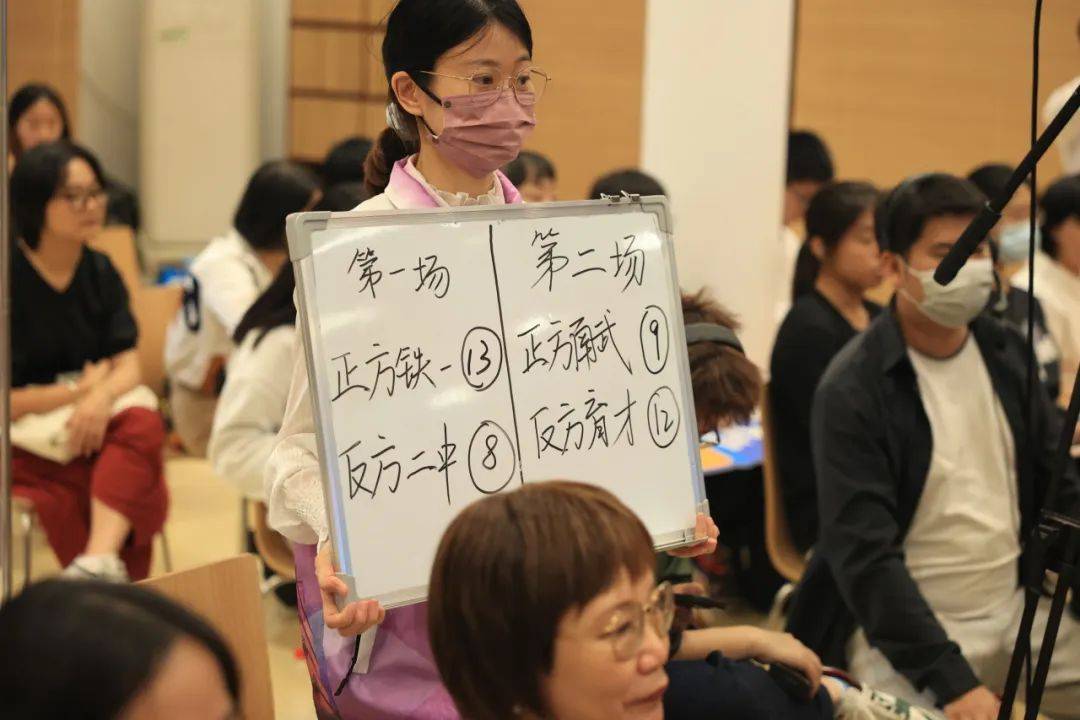 第一场
正方铁一 ⑬
反方二中 ⑧
第二场
正方南武 ⑨
反方育才 ⑫